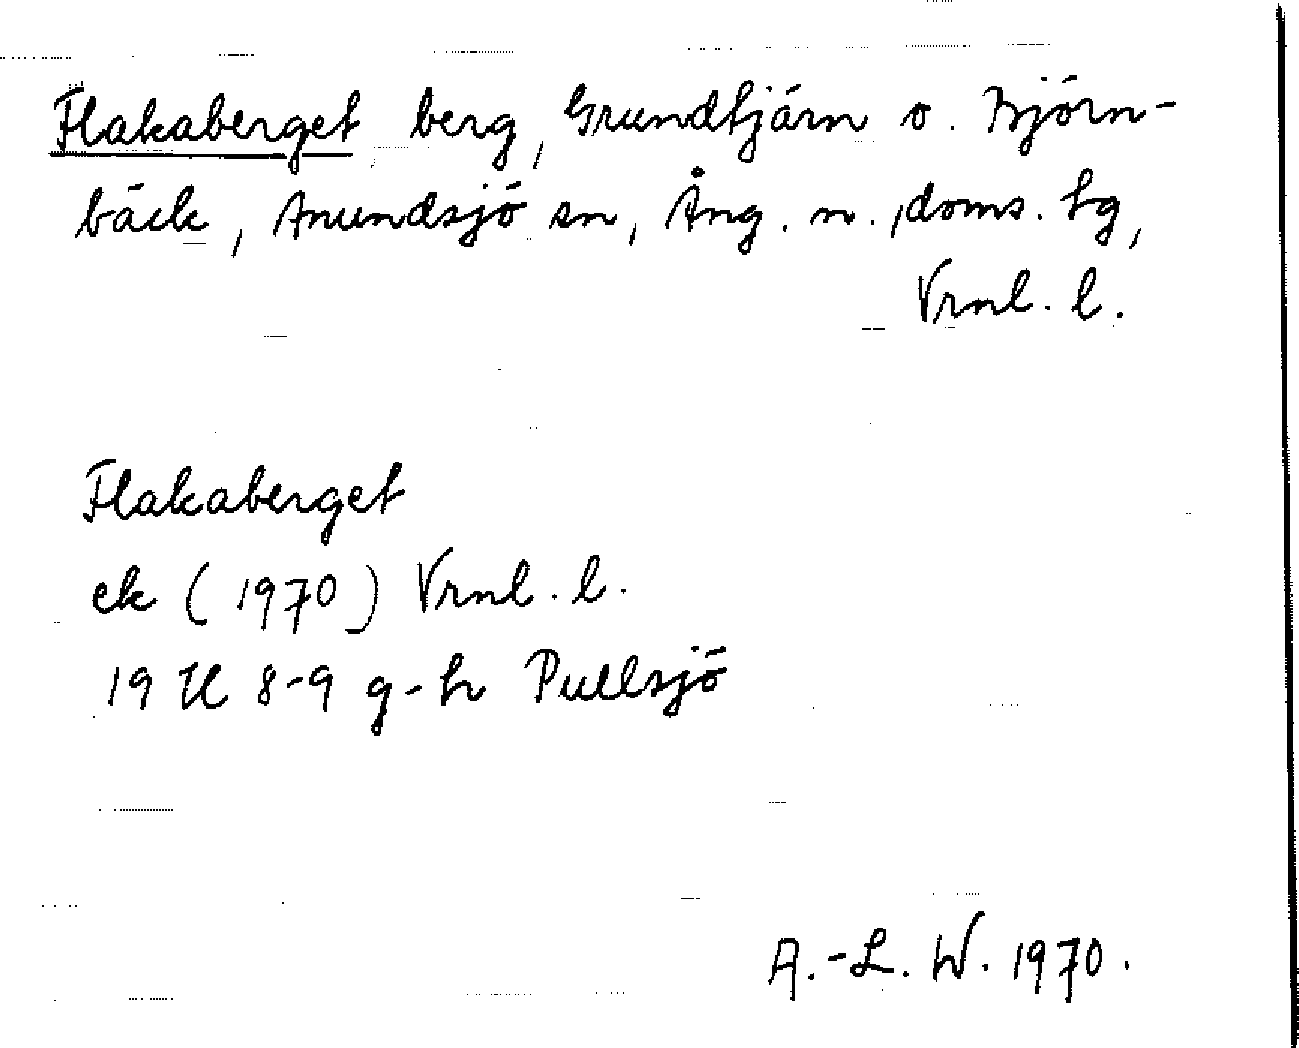 Flakaberget berg, Grundtjärn o. Björn-
bäck, Anundsjö sn, Ång. n., doms. hg,
Vrnl. l.
Flakaberget
ek (1970) Vrnl. l.
19 H 8-9 g-h Pullsjö
A.-L. W. 1970.